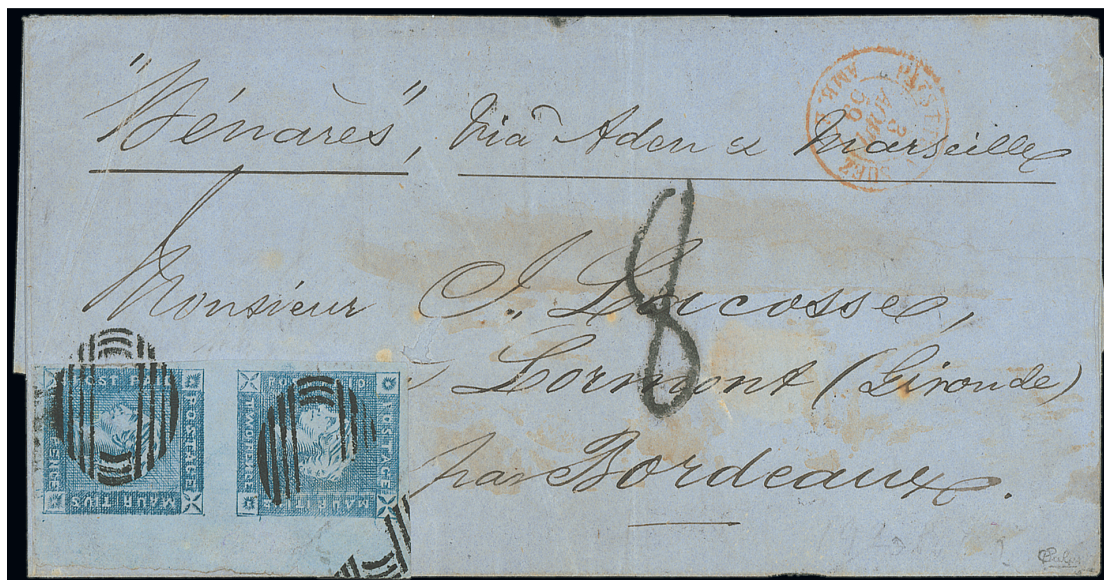 "Bénarès", Via Aden & Marseille
SUEZ
AMB.
3
AVRIL
60
8
Monsieur J. Lacosse,
Lormont (Gironde)
par Bordeaux.
POST PAID
POSTAGE
MAURITIUS
TWO PENCE
POST PAID
POSTAGE
MAURITIUS
TWO PENCE